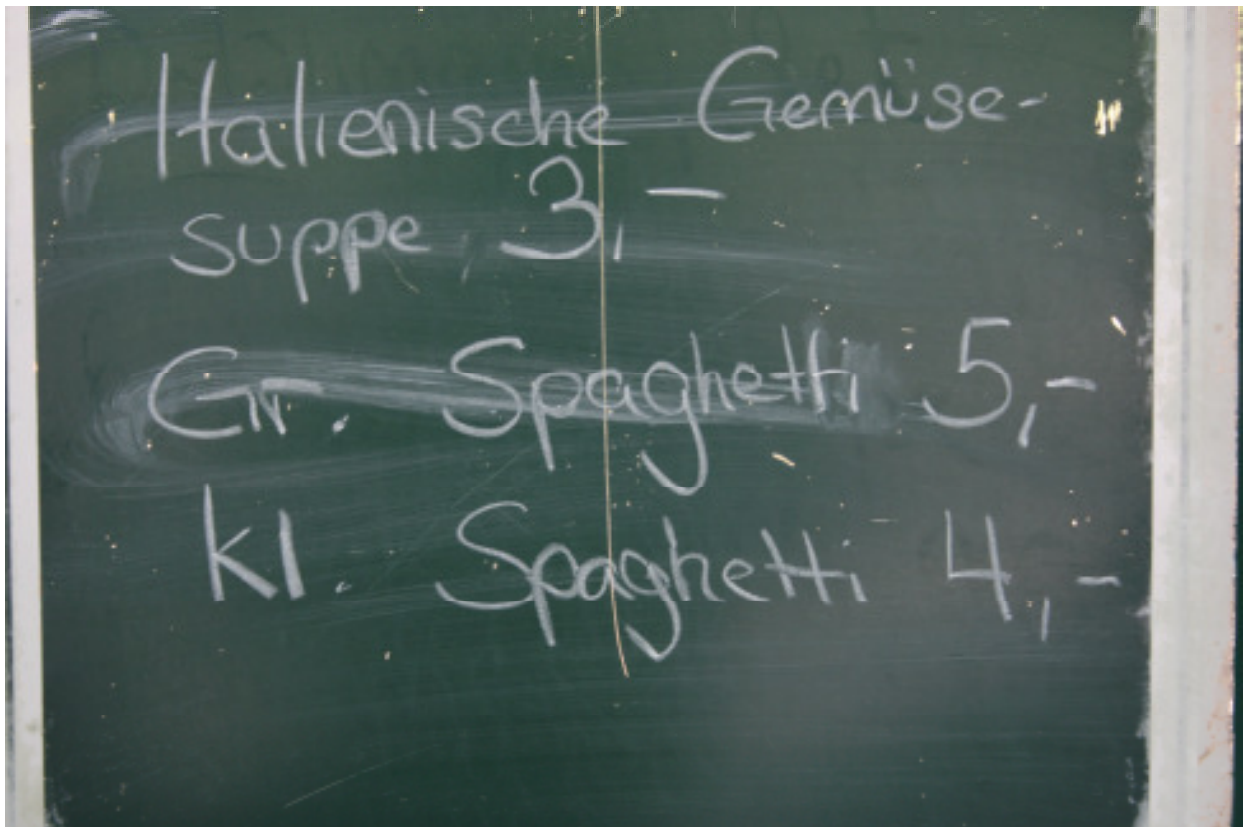 Italienische Gemüse-
suppe 3,-
Gr. Spaghetti 5,-
kl. Spaghetti 4,-